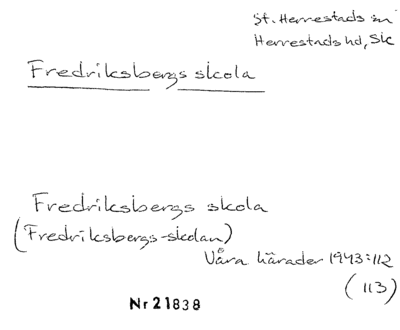 St. Herrestads sn
Herrestads hd, Sk
Fredriksbergs skola
Fredriksbergs skola
(Fredriksbergs-skolan)
Våra härader 1943:112
(113)
Nr 21838